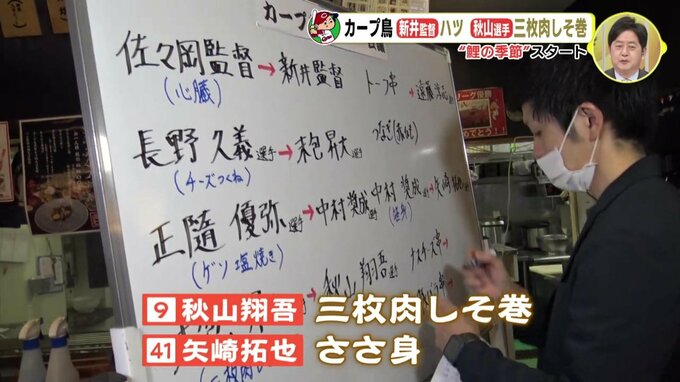 カープ鳥 新井監督 ハツ 秋山選手 三枚肉しそ巻
“鯉の季節”スタート
カープ
佐々岡監督→新井監督
(心臓)
トーフ串→遠藤
長野久義選手→末包昇大選手
(チーズつくね)
つなぎ
正隨優弥選手→中村奨成選手
(ゲソ塩焼き)
中村奨成→矢崎
秋山翔吾選手
ナスチーズ串→
9 秋山翔吾 三枚肉しそ巻
41 矢崎拓也 ささ身